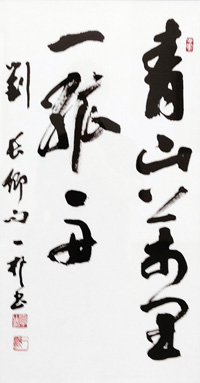 青山萬里
一孤舟
劉長卿句一書